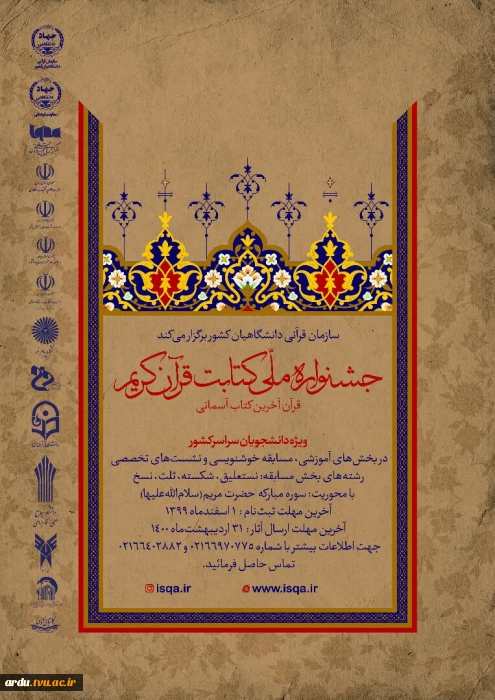 جهاد
دانشگاهی
سازمان قرآنی
دانشگاهیان کشور
جهاد
دانشگاهی
معاونت فرهنگی
سازمان قرآنی دانشگاهیان کشور برگزار می‌کند
جشنواره ملّی کتابت قرآن کریم
قرآن آخرین کتاب آسمانی
ویژه دانشجویان سراسر کشور
در بخش‌های آموزشی، مسابقه خوشنویسی و نشست‌های تخصصی
رشته‌های بخش مسابقه: نستعلیق، شکسته، ثلث، نسخ
با محوریت: سوره مبارکه حضرت مریم(سلام‌الله‌علیها)
آخرین مهلت ثبت‌نام : ۱ اسفندماه ۱۳۹۹
آخرین مهلت ارسال آثار : ۳۱ اردیبهشت‌ماه ۱۴۰۰
جهت اطلاعات بیشتر با شماره ۰۲۱۶۶۹۷۰۷۷۵ و ۰۲۱۶۶۴۰۲۸۸۲
تماس حاصل فرمائید.
isqa.ir
www.isqa.ir
ardu.tvu.ac.ir